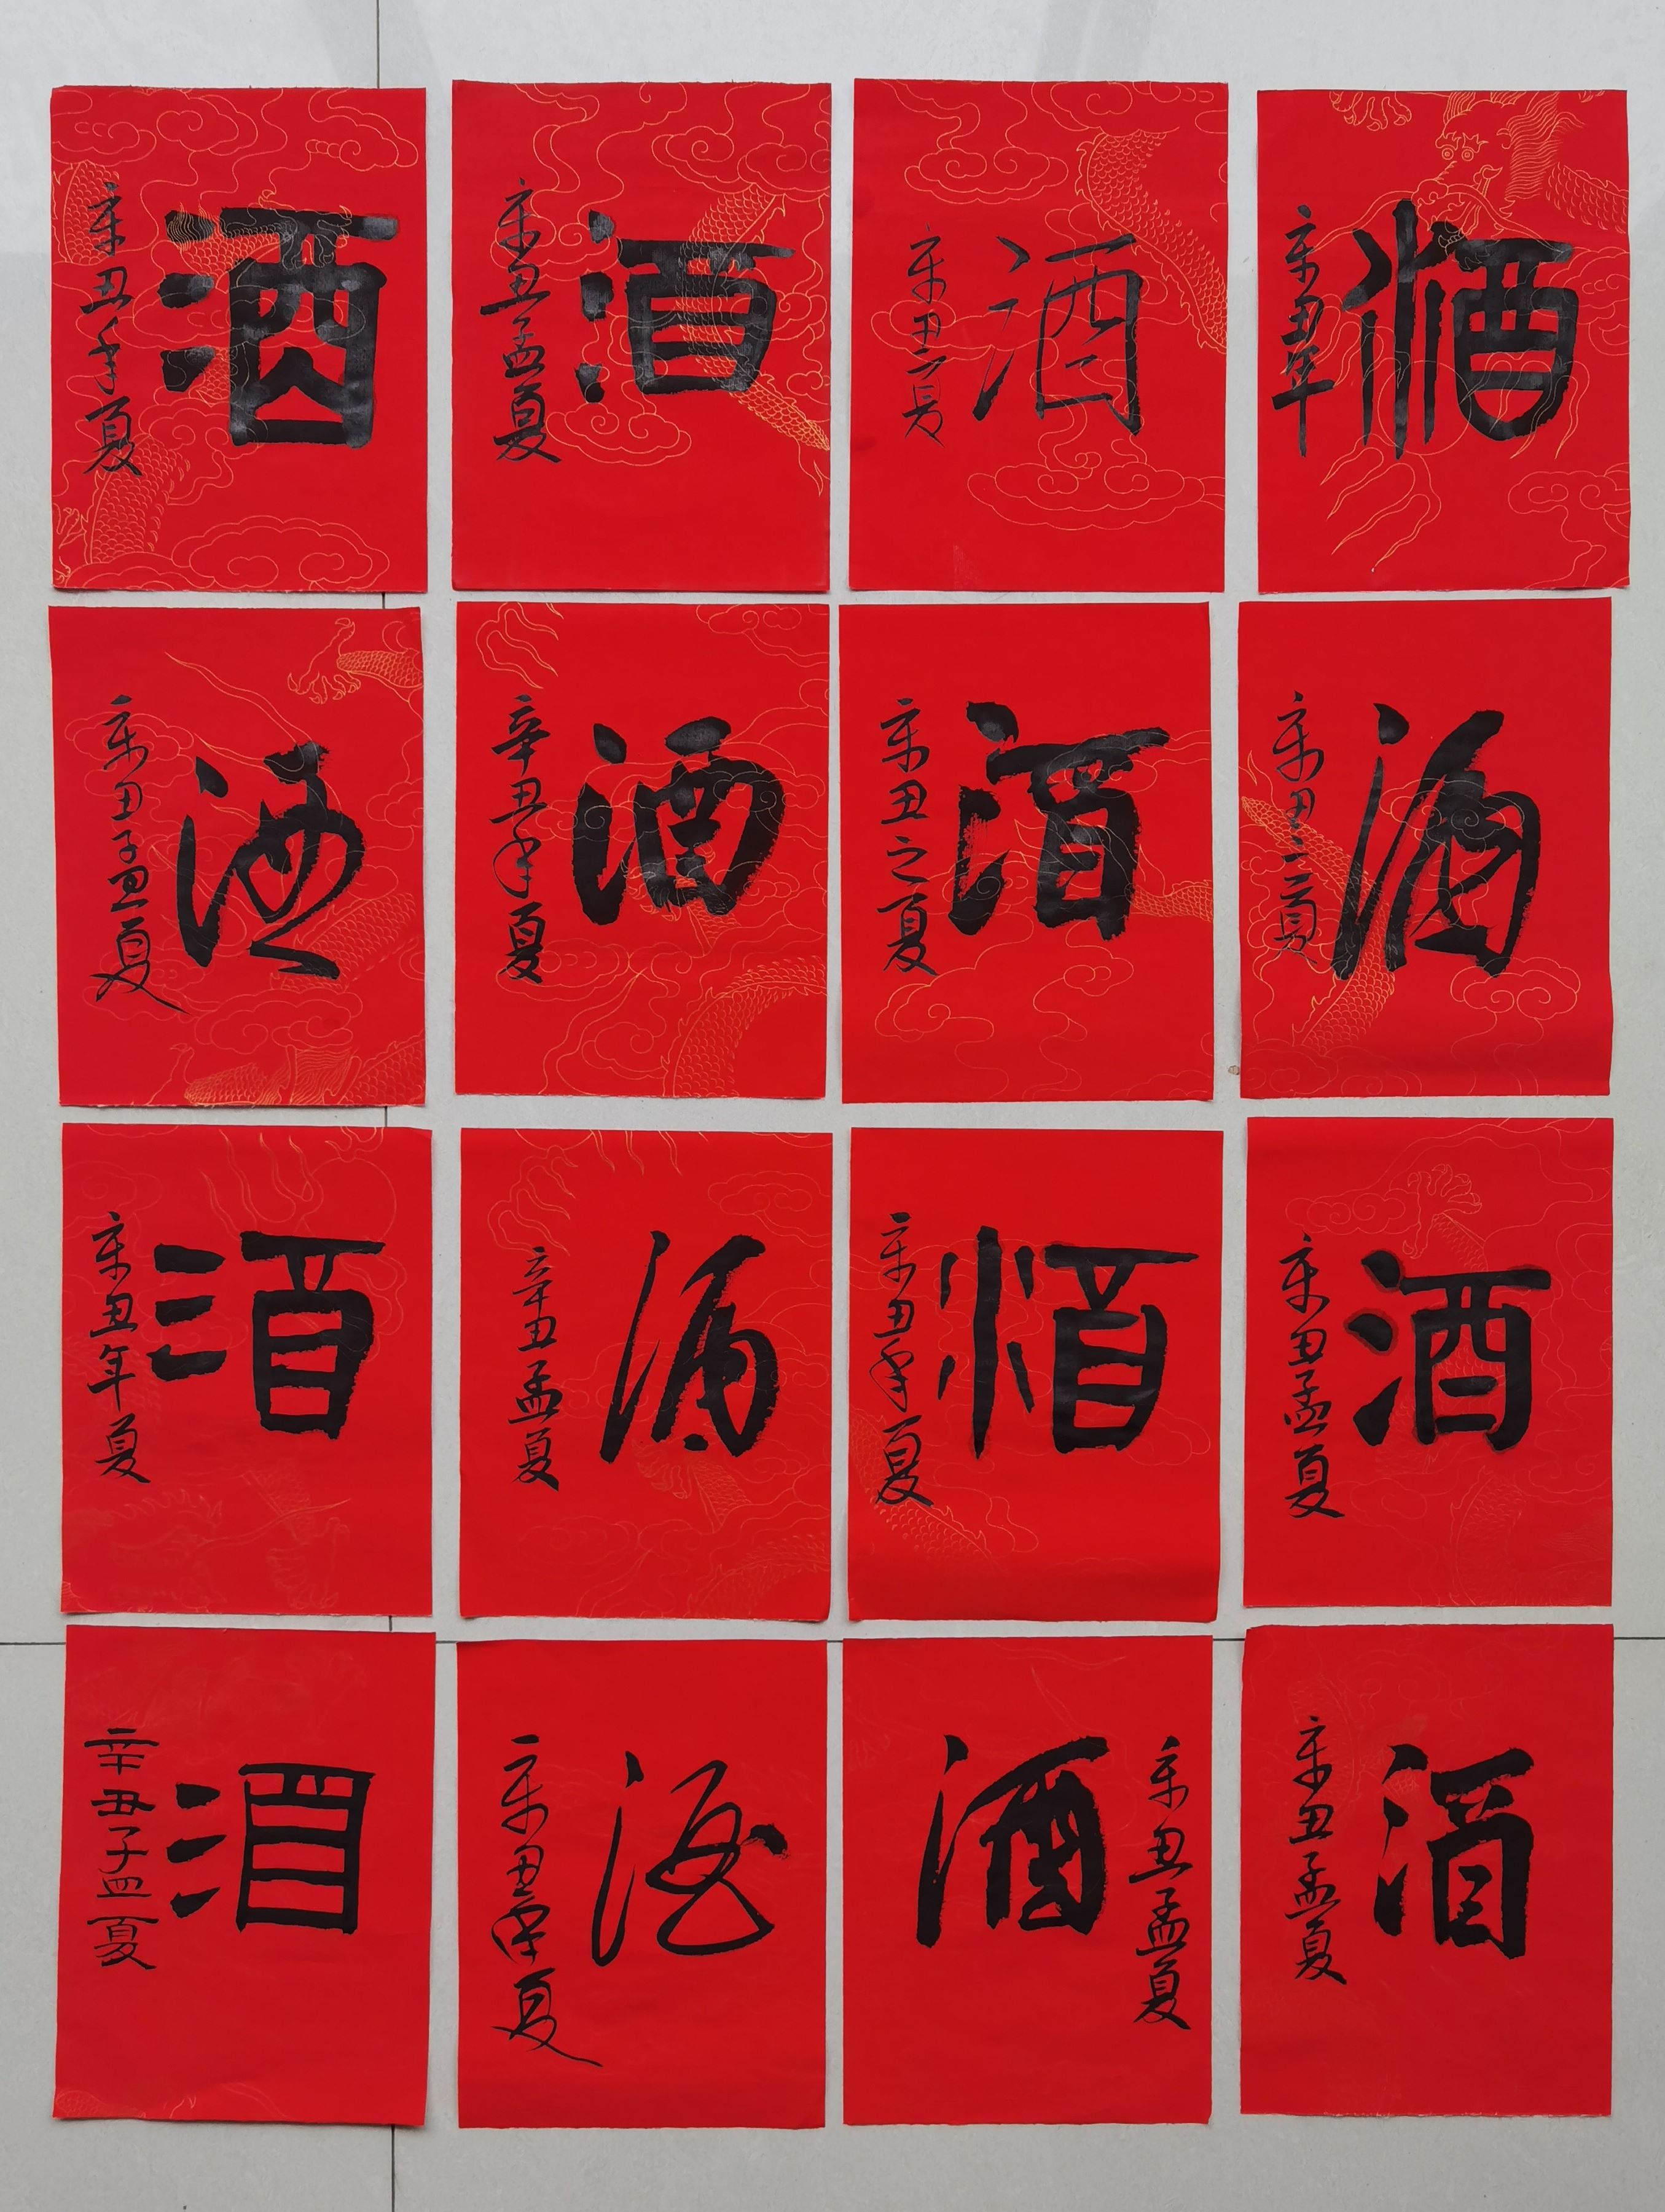 酒
辛丑年夏
酒
辛丑孟夏
酒
辛丑夏
酒
辛丑年
酒
辛丑孟夏
酒
辛丑年夏
酒
辛丑之夏
酒
辛丑之夏
酒
辛丑年夏
酒
辛丑孟夏
酒
辛丑年夏
酒
辛丑孟夏
酒
辛丑孟夏
酒
辛丑年夏
酒
辛丑孟夏
酒
辛丑孟夏